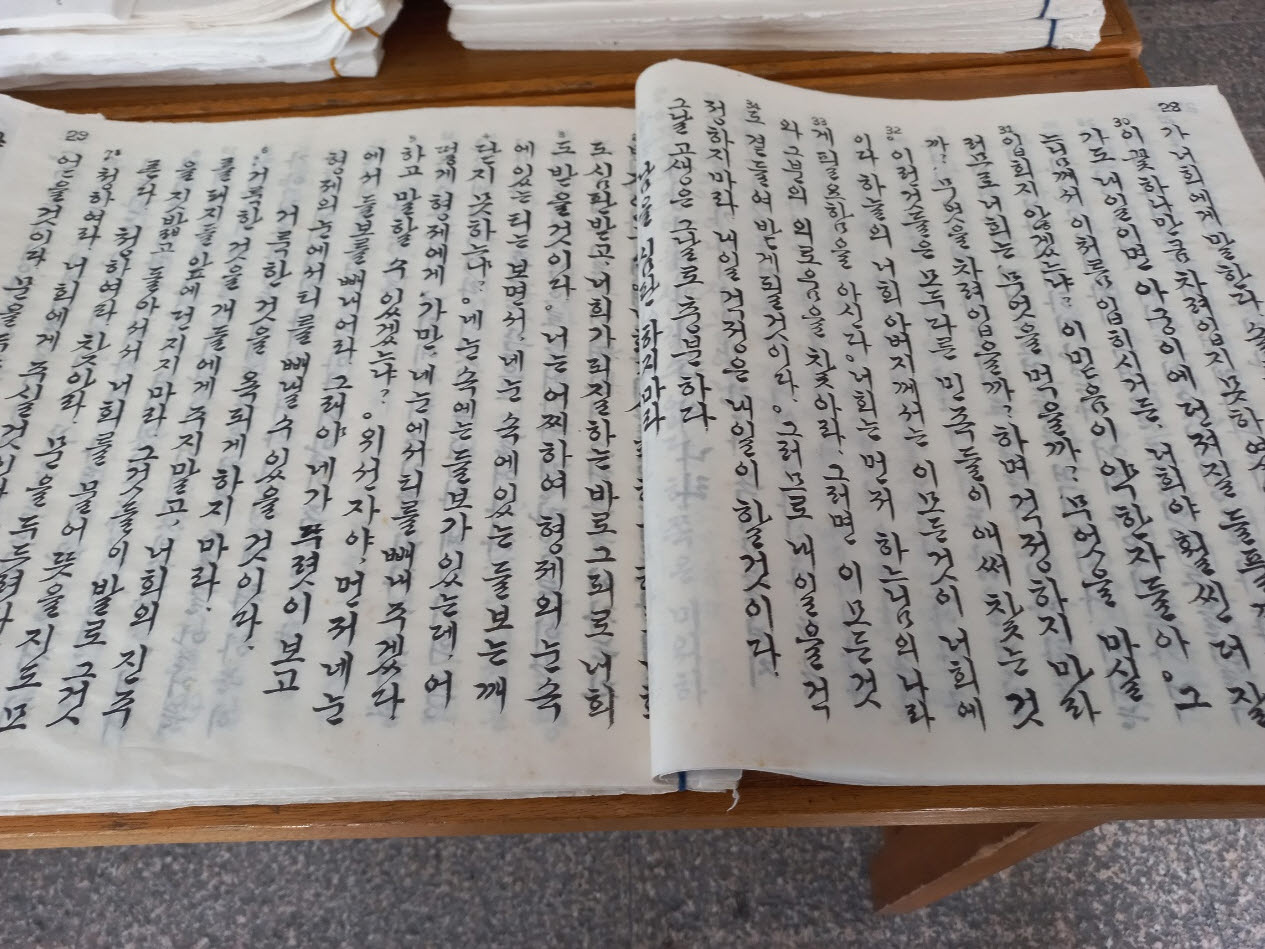 28
가 너희에게 말한다. 솔
30
이 꽃 하나만큼 차려입지 못하였
가도 내일이면 아궁이에 던져질 들풀까
느님께서 이처럼 입히시거든, 너희야 훨씬 더 잘
입히지 않겠느냐? 이 믿음이 약한자들아 。그
31
러므로 너희는 무엇을 먹을까? 무엇을 마실
까? 무엇을 차려입을까? 하며 걱정하지 마라
32
이런것들은 모두 다른 민족들이 애써 찾는 것
이다 하늘의 너희 아버지께서는 이 모든것이 너희에
33
게 필요함을 아신다 。너희는 먼저 하느님의 나라
와 그분의 의로움을 찾아라. 그러면 이 모든것
34
도 곁들여 받게 될것이다. 。그러므로 내일을 걱
정하지마라. 내일 걱정은 내일이 할것이다.
그날 고생은 그날로 충분하다
29
남을 심판 하지마라
도 심판받고, 너희가 되질하는 바로 그 되로 너희
3
도 받을것이다. 。너는 어찌하여 형제의 눈속
에 있는 티는 보면서, 네 눈 속에 있는 들보는 깨
4
닫지 못하느냐? 。네 눈속에는 들보가 있는데, 어
떻게 형제에게 가만, 네 눈에서 티를 빼내 주겠다
5
하고 말할 수 있겠느냐? 。위선자야, 먼저 네 눈
에서 들보를 빼내어라 그래야 네가 뚜렷이 보고
형제의 눈에서 티를 빼낼 수 있을 것이다.
거룩한 것을 욕되게 하지 마라.
6
。거룩한 것을 개들에게 주지말고, 너희의 진주
를 돼지들 앞에 던지지 마라. 그것들이 발로 그것
을 짓밟고 돌아서서 너희를 물어 뜯을 지도 모
른다.
청하여라 찾아라 문을 두드려라
7
청하여라 너희에게 주실것이다
얻을것이다 문을